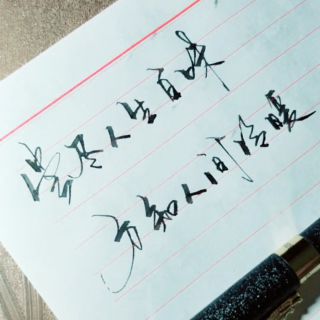 尝尽人生百味
方知人间冷暖